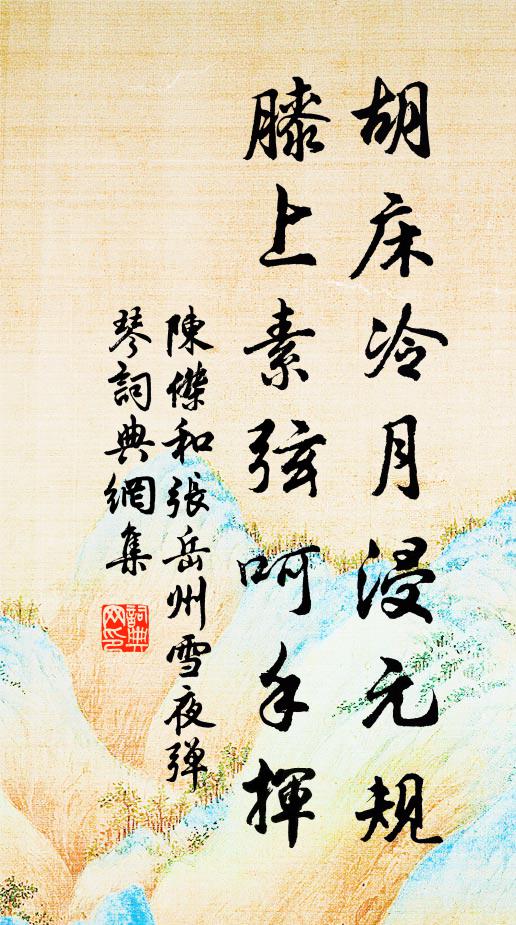 胡床冷月浸元规
膝上素弦呵手揮
陳傑和張岳州雪夜弹
琴詞典網集
詞典